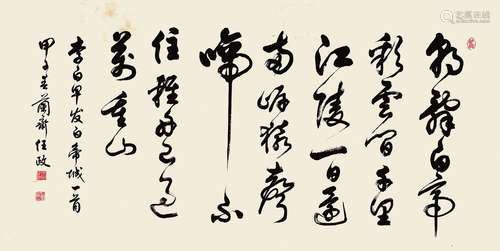 朝辭白帝
彩雲間千里
江陵一日還
兩岸猿聲
啼不
住輕舟已過
萬重山
李白早发白帝城一首
甲子春蘭齋任政